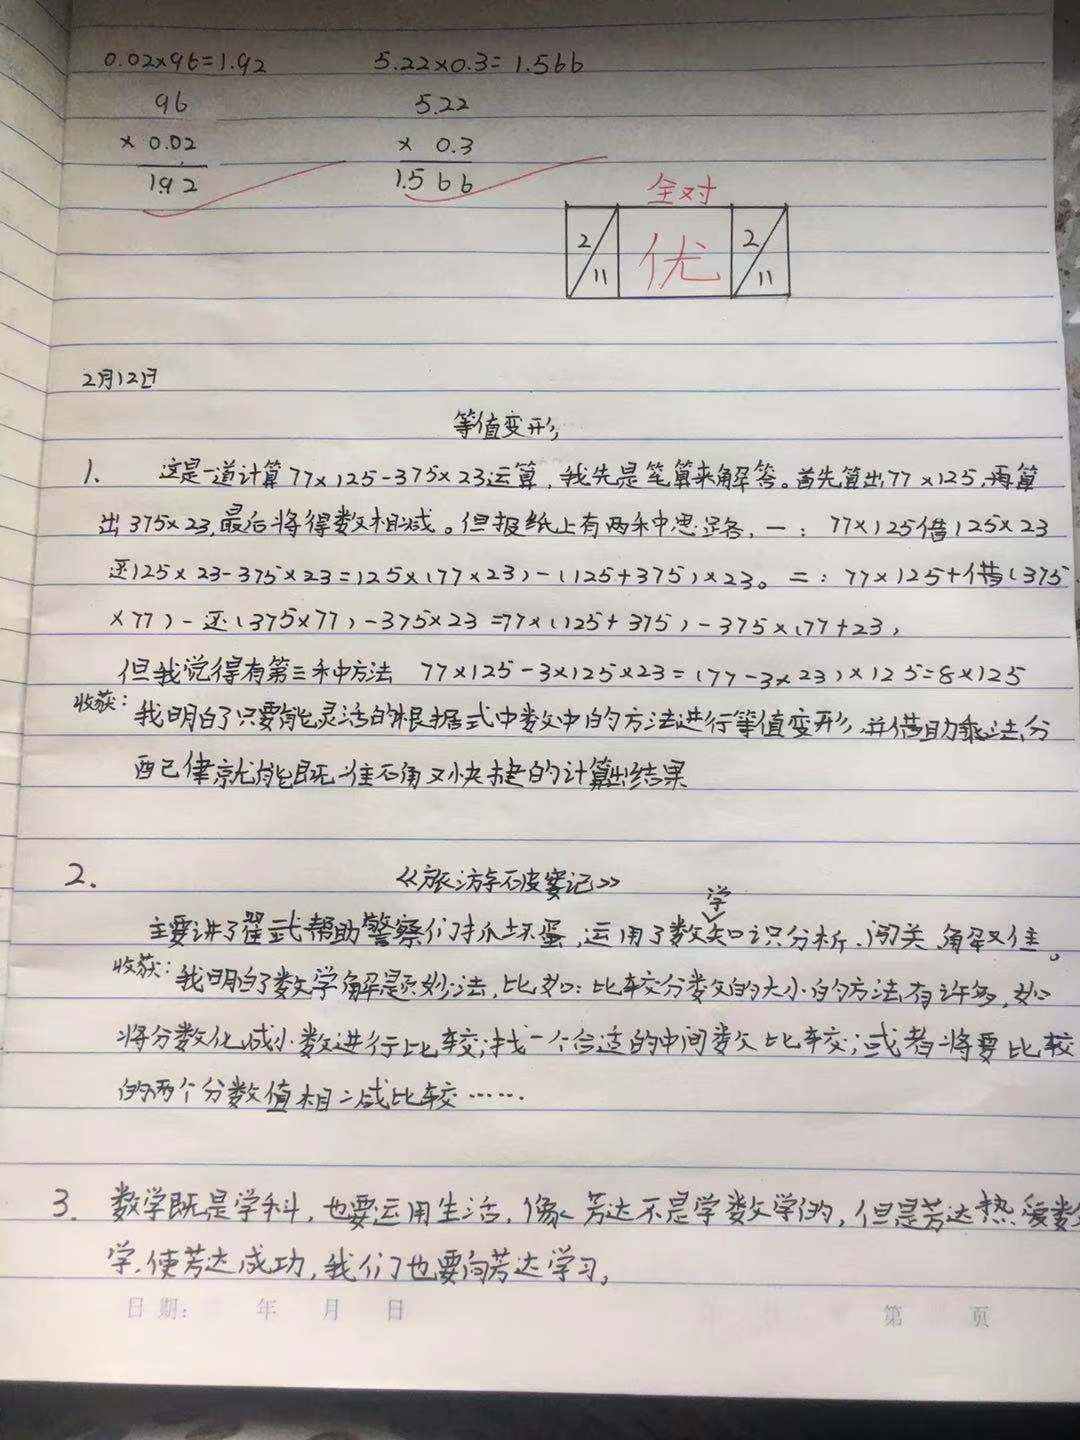 0.02×96=1.92 5.22×0.3=1.566
96 5.22
× 0.02 × 0.3
1.92 1.566
全对
2/11 优 2/11
2月12日
等值变形
1. 这是一道计算77×125-375×23运算,我先是笔算来解答。首先算出77×125,再算
出375×23,最后将得数相减。但报纸上有两种思路,一:77×125借125×23
还125×23-375×23=125×(77×23)-(125+375)×23。二:77×125+借(375
×77)-还(375×77)-375×23=77×(125+375)-375×(77+23,
但我觉得有第三种方法 77×125-3×125×23=(77-3×23)×125=8×125
收获:我明白了只要能灵活的根据式中数中的方法进行等值变形,并借助乘法分
配律就能既准确又快捷的计算出结果
2. 《旅游破案记》
主要讲了翟武帮助警察们抓坏蛋,运用了数学知识分析、闯关、解救人质。
收获:我明白了数学解题妙法,比如:比较分数的大小的方法有许多,如
将分数化成小数进行比较;找一个合适的中间数比较;或者将要比较
的两个分数值相减比较……
3. 数学既是学科,也要运用生活,像芳达不是学数学的,但是芳达热爱数
学,使芳达成功,我们也要向芳达学习,
日期: 年 月 日 第 页